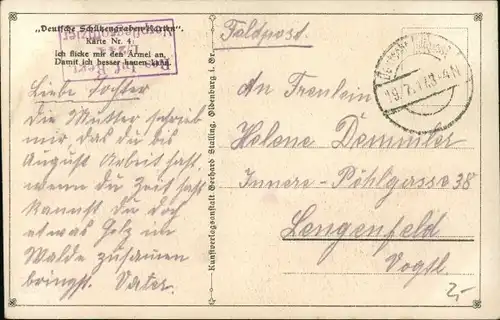 „Deutsche Schützengraben-Karten".
Karte Nr. 4.
Ich flicke mir den Ärmel an,
Damit ich besser hauen kann.
Liebe Tochter
Die Mutter schrieb
mir das du bis
August Arbeit hast
wenn du Zeit hast
kannst du doch
etwas Holz im
Walde zusamen
bringst. Vater.
Kunstverlagsanstalt Gerhard Stalling, Oldenburg i. Gr.
Feldpost
19.7.17. 3-4 N
An Freulein
Helene Demmler
Innere-Pöhlgasse 38
Lengenfeld
Vogtl